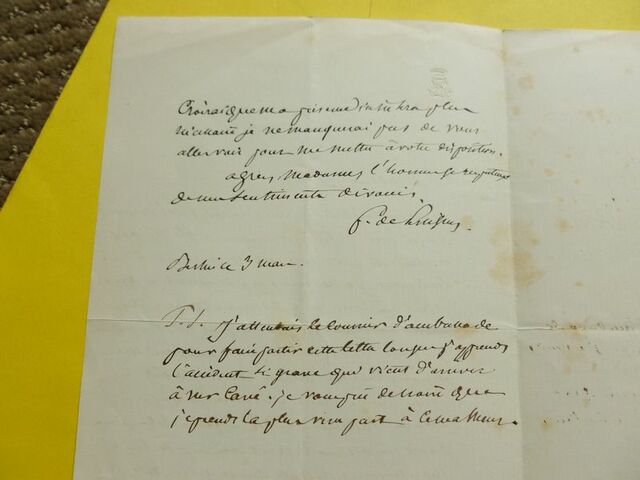 que ma présence
je ne manquerai pas de vous
aller voir pour me mettre à votre disposition.
agréez Mesdames l'hommage
de mes sentiments dévoués.
Berlin le 3 mars
P.S. J'attendais le courrier d'ambassade
pour faire partir cette lettre lorsque j'apprends
l'accident si grave qui vient d'arriver
à Mr Carré. je vous prie de croire que
je prends la plus vive part à ce malheur.